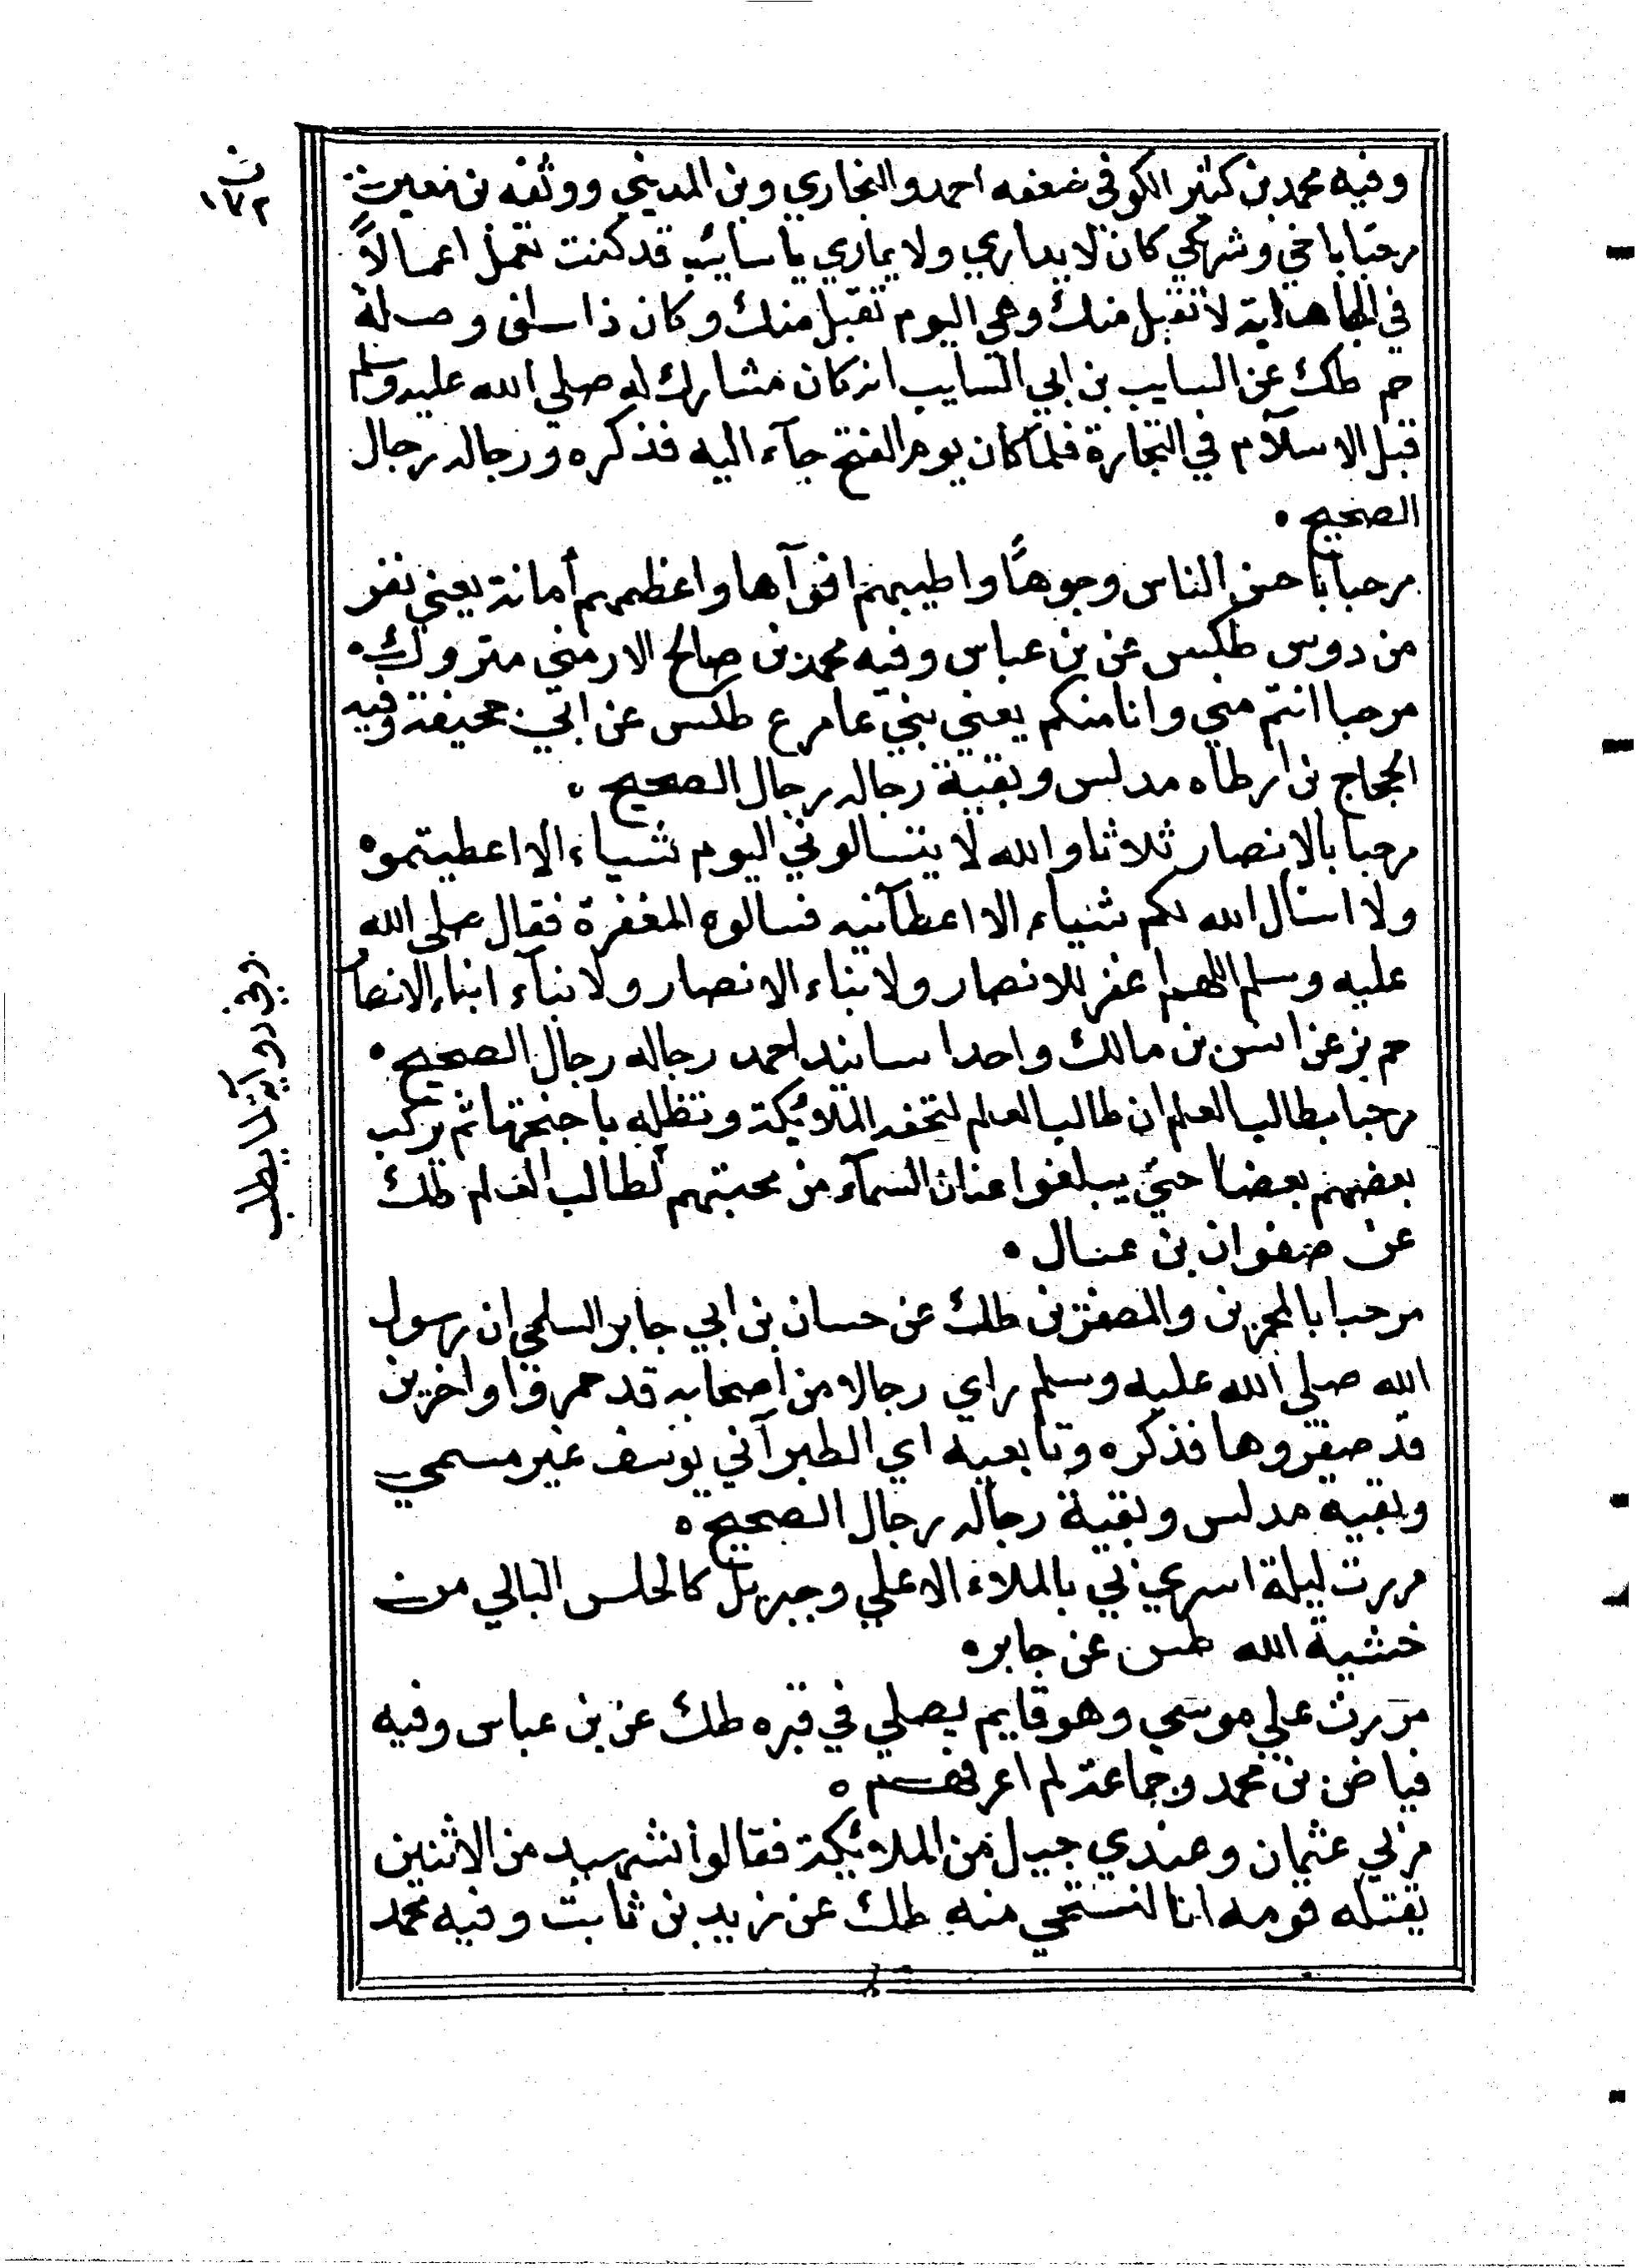 ث
١٧٢
وفيه محمد بن كثير الكوفي ضعفه احمد والبخاري وبن المديني ووثقه بن معين
مرحبًا باخي وشريكي كان لا يداري ولا يماري يا سائب قد كنت تعمل اعمالاً
في الجاهلية لا تقبل منك وهي اليوم تقبل منك وكان ذا سلف وصلة
حم طك عن السايب بن ابي السايب انه كان مشارك له صلي الله عليه وسلم
قبل الاسلام في التجارة فلما كان يوم الفتح جآء اليه فذكره ورجاله رجال
الصحيح
مرحبا باحسن الناس وجوهًا واطيبهم افوآها واعظمهم أمانة يعني نفر
من دوس طكس عن بن عباس وفيه محمد بن صالح الارمني متروك
مرحبا انتم مني وانا منكم يعني بني عامر ع طكس عن ابي جحيفة وفيه
الحجاج بن ارطاه مدلس وبقية رجاله رجال الصحيح
مرحبا بالانصار ثلاثا والله لا يتسالوني اليوم شياء الا اعطيتموه
ولا اسأل الله لكم شياء الا اعطآنيه فسالوه المغفرة فقال صلى الله
عليه وسلم اللهم اغفر للانصار ولابناء الانصار ولابنآء ابناء الانصار
حم بز عن انس بن مالك واحد اسانيد احمد رجاله رجال الصحيح
مرحبا بطالب العلم ان طالب العلم لتحفه الملائكة وتظله باجنحتها ثم يركب
بعضهم بعضا حتي يبلغوا عنان السمآء من محبتهم لطالب العلم طك
عن صفوان بن عسال
مرحبا بالمحمرين والمصفرين طك عن حسان بن ابي جابر السلمي ان رسول
الله صلي الله عليه وسلم راي رجالا من اصحابه قد حمروا واخرين
قد صفروها فذكره وتابعيه اي الطبرآني يوسف غير مسمي
وبقيه مدلس وبقية رجاله رجال الصحيح
مررت ليلة اسري بي بالملاء الاعلي وجبريل كالحلس البالي من
خشية الله طس عن جابر
مررت علي موسي وهو قايم يصلي في قبره طك عن بن عباس وفيه
فياض بن محمد وجماعة لم اعرفهم
مر بي عثمان وعندي جيل من الملائكة فقالوا شهيد من الاثنين
يقتله قومه انا لنستحي منه طك عن زيد بن ثابت وفيه محمد